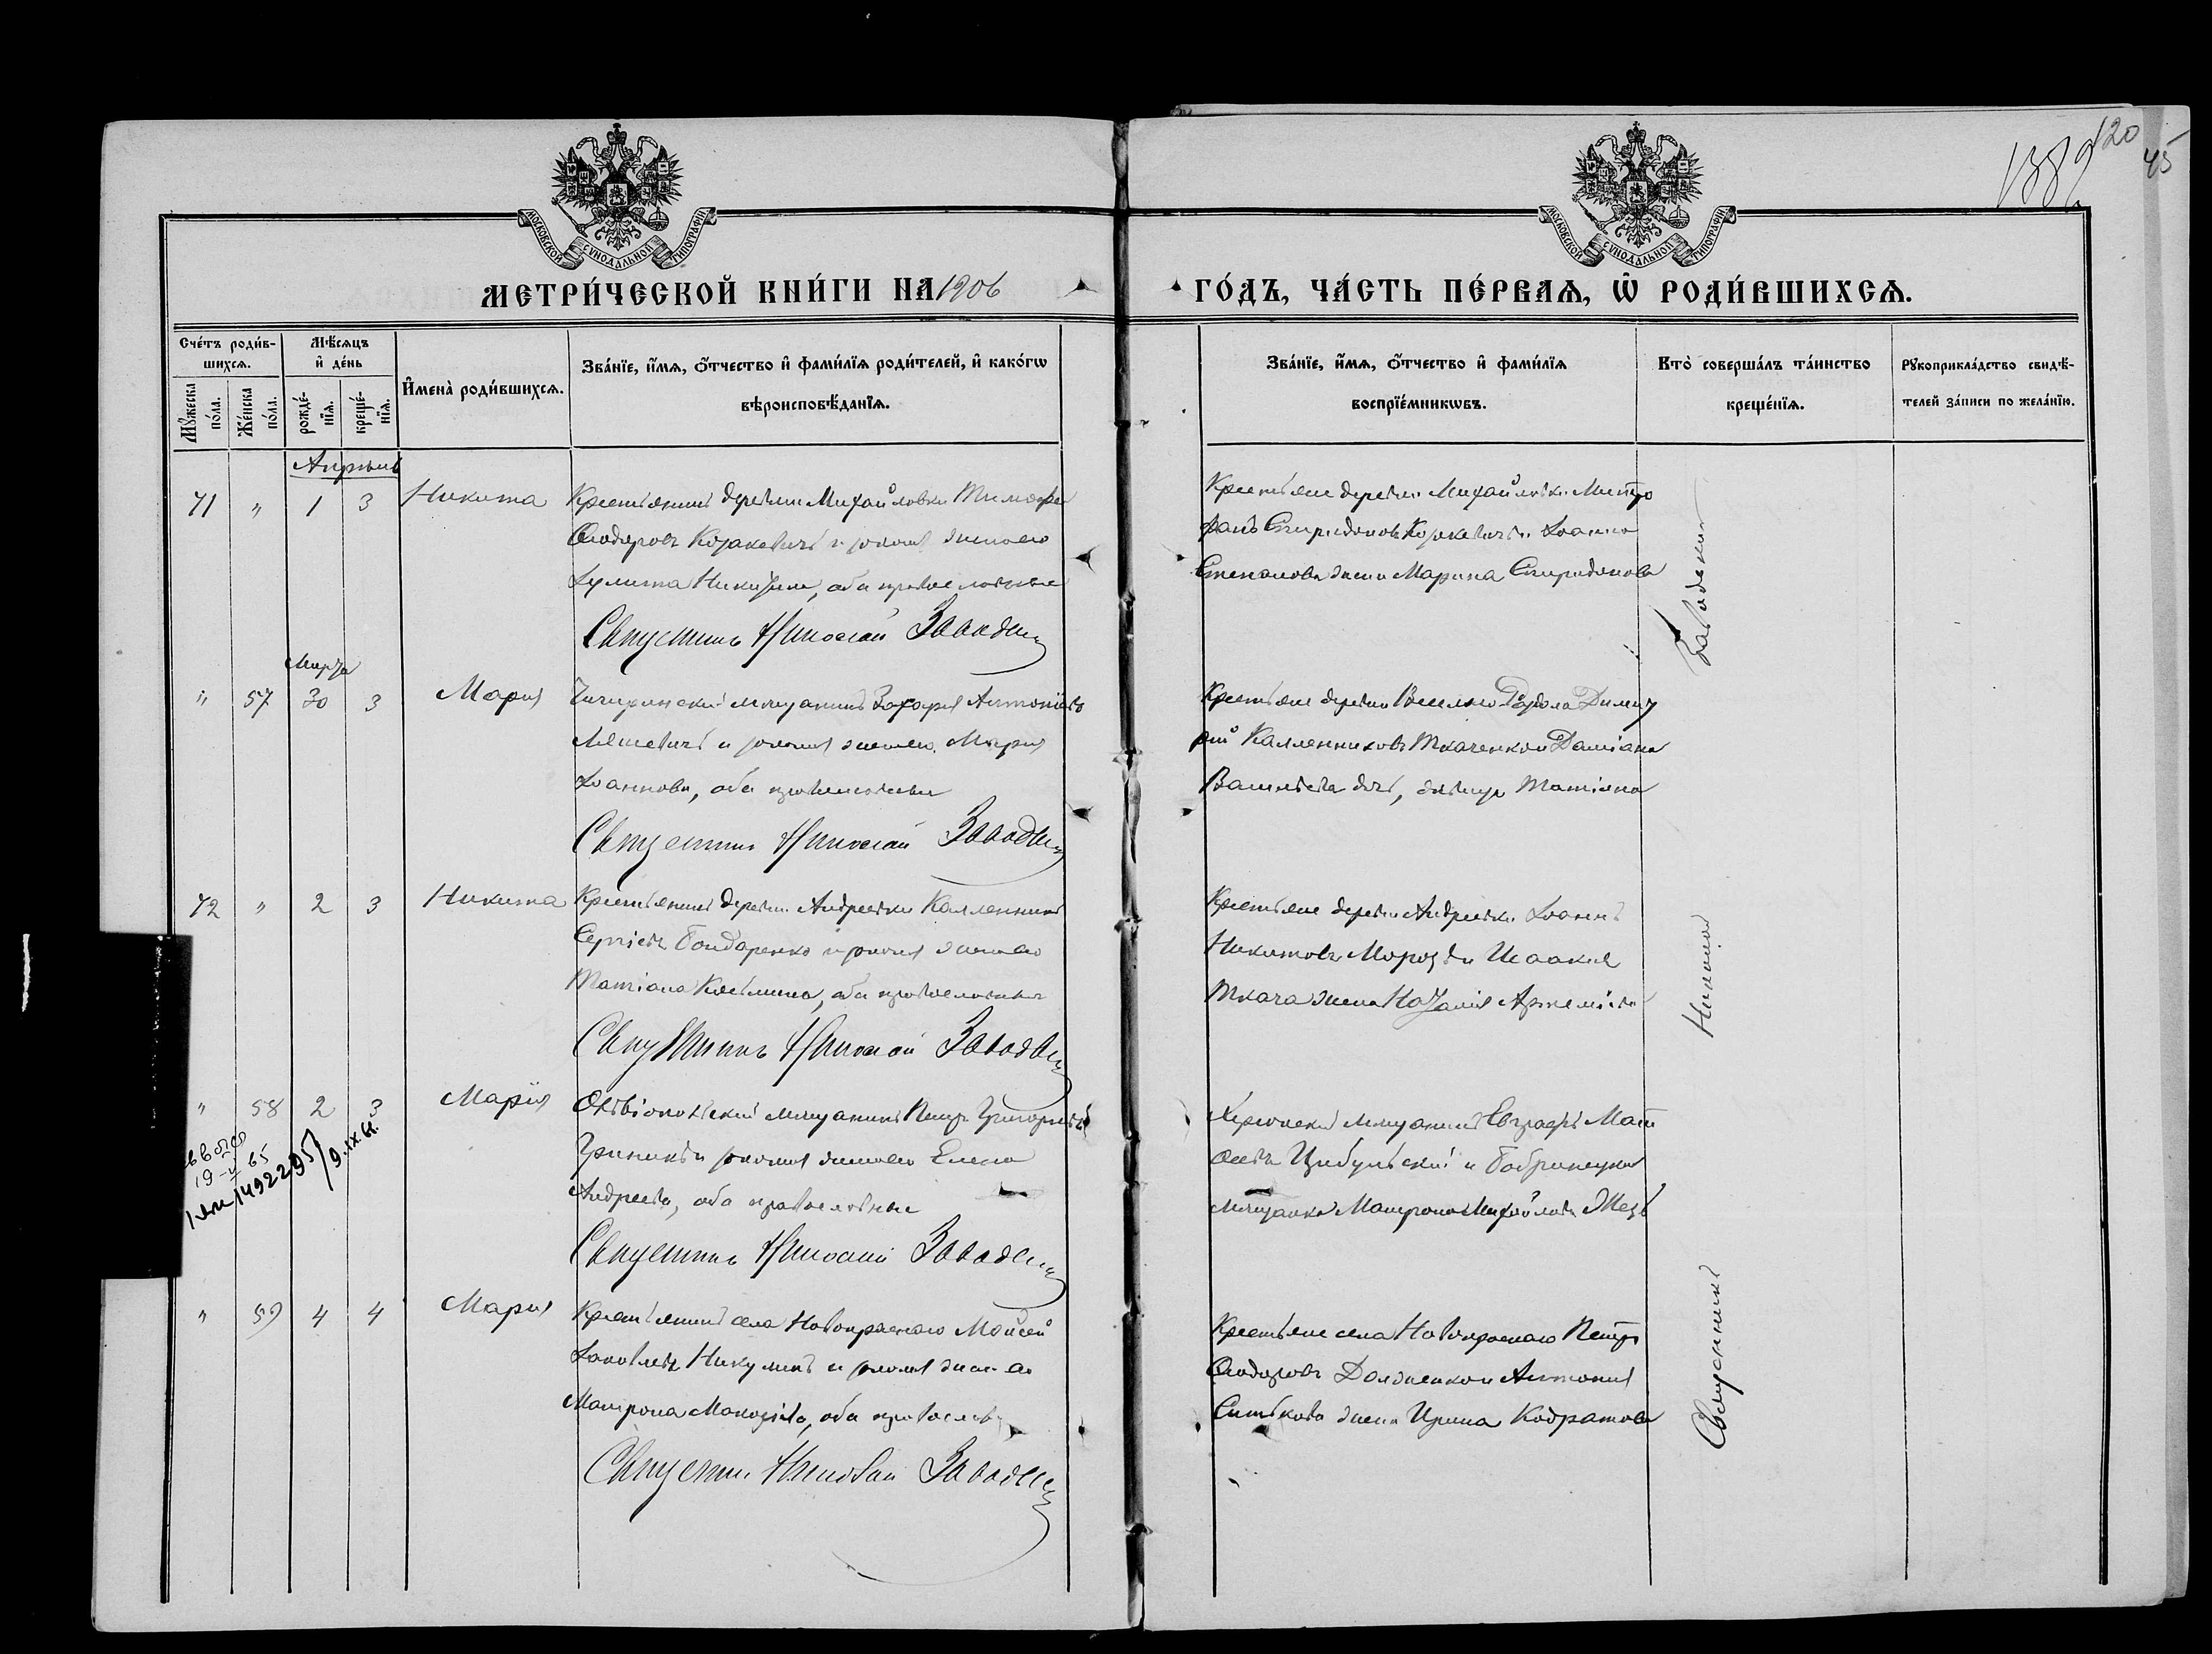 120
45
МОСКОВСКОЙ СѴНОДАЛЬНОЙ ТИПОГРАФІИ
МОСКОВСКОЙ СѴНОДАЛЬНОЙ ТИПОГРАФІИ
МЕТРИ́ЧЕСКОЙ КНИ́ГИ НА 1906 ГО́ДЪ, ЧА́СТЬ ПЕ́РВАѦ, Ѡ҆ РОДИ́ВШИХСѦ.
Сче́тъ роди́в-
шихсѧ.
Мꙋ́жеска по́ла.
Же́нска по́ла.
Мѣ́сѧцъ
и҆ де́нь
рожде́-
нїѧ.
креще́-
нїѧ.
И҆мена̀ роди́вшихсѧ.
Зва́нїе, и҆́мѧ, ѻ҆́тчество и҆ фами́лїѧ роди́телей, и҆ како́гѡ
вѣроисповѣ́данїѧ.
Зва́нїе, и҆́мѧ, ѻ҆́тчество и҆ фами́лїѧ
воспрїе́мникѡвъ.
Кто̀ соверша́лъ та́инство
креще́нїѧ.
Рꙋкоприкла́дство свидѣ́-
телей за́писи по жела́нїю.
Апрѣль
71 " 1 3 Никита
Крестьянинъ деревни Михайловки Тимофей
Ѳеодоровъ Козакевичъ и законная жена его
Іулита Никитина, оба православные
Священникъ Николай Заводск
Крестьяне деревни Михайловки Митро
фанъ Спиридоновъ Козакевичъ и Іоанна
Степанова жена Марина Спиридонова
Марта
" 57 30 3 Марія
Чигиринскій мѣщанинъ Захарія Антоніевъ
и законная жена его Марія
Іоаннова, оба православные
Священникъ Николай Заводск
Крестьяне деревни Веселаго Дими
рій Каленниковъ Ткаченко и Даміана
Васильева дѣвица Татіана
72 " 2 3 Никита
Крестьянинъ деревни Андреевки Калленникъ
Сергіевъ Бондаренко и законная жена его
Татіана, оба православные
Священникъ Николай Заводск
Крестьяне деревни Андреевки Іоаннъ
Никитовъ Мороз и Исаакія
Ткача жена Наталія Артеміева
" 58 2 3 Марія
Овидіопольскій мѣщанинъ Петръ Григорьевъ
и законная жена его Елена
Андреева, оба православные
Священникъ Николай Заводск
Херсонскій мѣщанинъ Евграфъ Мат
Цибульскій и Бобринецкая
мѣщанка Матрона Михайлова
19-V 65
1492295
9.IX.65.
" 59 4 4 Марія
Крестьянинъ села Новокраснаго Моисей
Іаковлевъ Никулинъ и законная жена его
Матрона, оба православ
Священникъ Николай Заводск
Крестьяне села Новокраснаго Петръ
Ѳеодоровъ Долженко и Антонія
Ситькова жена Ирина Кодратова
Священникъ Николай Заводскій